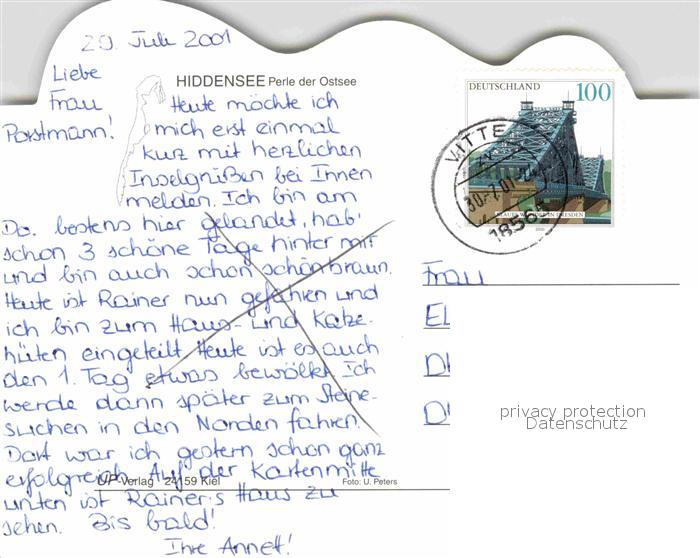 29. Juli 2001
Liebe
Frau
Porstmann!
HIDDENSEE Perle der Ostsee
Heute möchte ich
mich erst einmal
kurz mit herzlichen
Inselgrüßen bei Ihnen
melden. Ich bin am
Do. bestens hier gelandet, hab'
schon 3 schöne Tage hinter mir
und bin auch schon schönbraun.
Heute ist Rainer nun gefahren und
ich bin zum Haus- und Katze-
hüten eingeteilt. Heute ist es auch
den 1. Tag etwas bewölkt. Ich
werde dann später zum Steine-
suchen in den Norden fahren.
Dort war ich gestern schon ganz
erfolgreich. Auf der Kartenmitte
unten ist Rainer's Haus zu
sehen. Bis bald!
Ihre Annett!
UP-Verlag 24159 Kiel
Foto: U. Peters
DEUTSCHLAND 100
BLAUES WUNDER IN DRESDEN
2000
VITTE
30.-7.01
18565
Frau
EL
D
privacy protection
Datenschutz